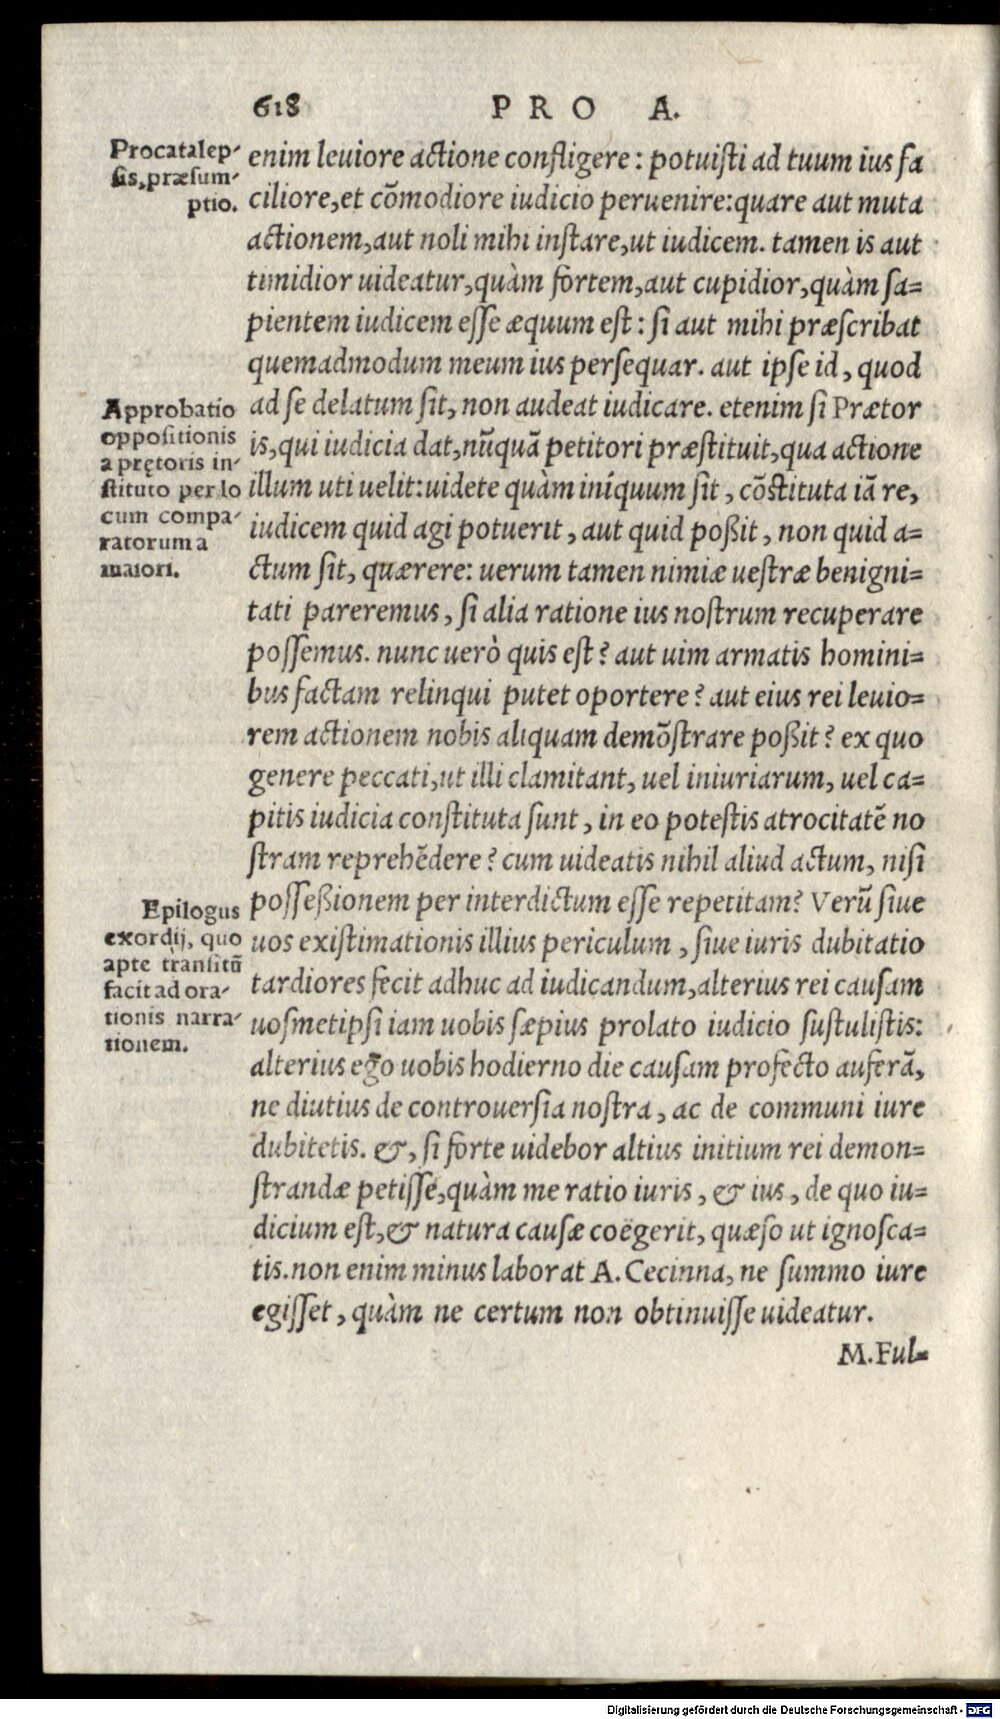 618 PRO A.
Procatalep-
sis, præsum-
ptio.
enim leuiore actione confligere : potuisti ad tuum ius fa
ciliore, et cõmodiore iudicio peruenire: quare aut muta
actionem, aut noli mihi instare, ut iudicem. tamen is aut
timidior uideatur, quàm fortem, aut cupidior, quàm sa=
pientem iudicem esse æquum est : si aut mihi præscribat
quemadmodum meum ius persequar. aut ipse id, quod
Approbatio
oppositionis
a prętoris in-
stituto per lo
cum compa-
ratorum a
maiori.
ad se delatum sit, non audeat iudicare. etenim si Prætor
is, qui iudicia dat, nũquã petitori præstituit, qua actione
illum uti uelit: uidete quàm iníquum sit, cõstituta iã re,
iudicem quid agi potuerit, aut quid poßit, non quid a=
ctum sit, quærere: uerum tamen nimiæ uestræ benigni=
tati pareremus, si alia ratione ius nostrum recuperare
possemus. nunc uerò quis est? aut uim armatis homini=
bus factam relinqui putet oportere? aut eius rei leuio=
rem actionem nobis aliquam demõstrare poßit? ex quo
genere peccati, ut illi clamitant, uel iniuriarum, uel ca=
pitis iudicia constituta sunt, in eo potestis atrocitatẽ no
stram reprehẽdere? cum uideatis nihil aliud actum, nisi
Epilogus
exordij, quo
apte transitũ
facit ad ora-
tionis narra-
tionem.
posseßionem per interdictum esse repetitam? Verũ siue
uos existimationis illius periculum, siue iuris dubitatio
tardiores fecit adhuc ad iudicandum, alterius rei causam
uosmetipsi iam uobis sæpius prolato iudicio sustulistis:
alterius ego uobis hodierno die causam profecto auferã,
ne diutius de controuersia nostra, ac de communi iure
dubitetis. &, si forte uidebor altius initium rei demon=
strandæ petisse, quàm me ratio iuris, & ius, de quo iu=
dicium est, & natura causæ coëgerit, quæso ut ignosca=
tis. non enim minus laborat A. Cecinna, ne summo iure
egisset, quàm ne certum non obtinuisse uideatur.
M. Ful=
Digitalisierung gefördert durch die Deutsche Forschungsgemeinschaft - DFG